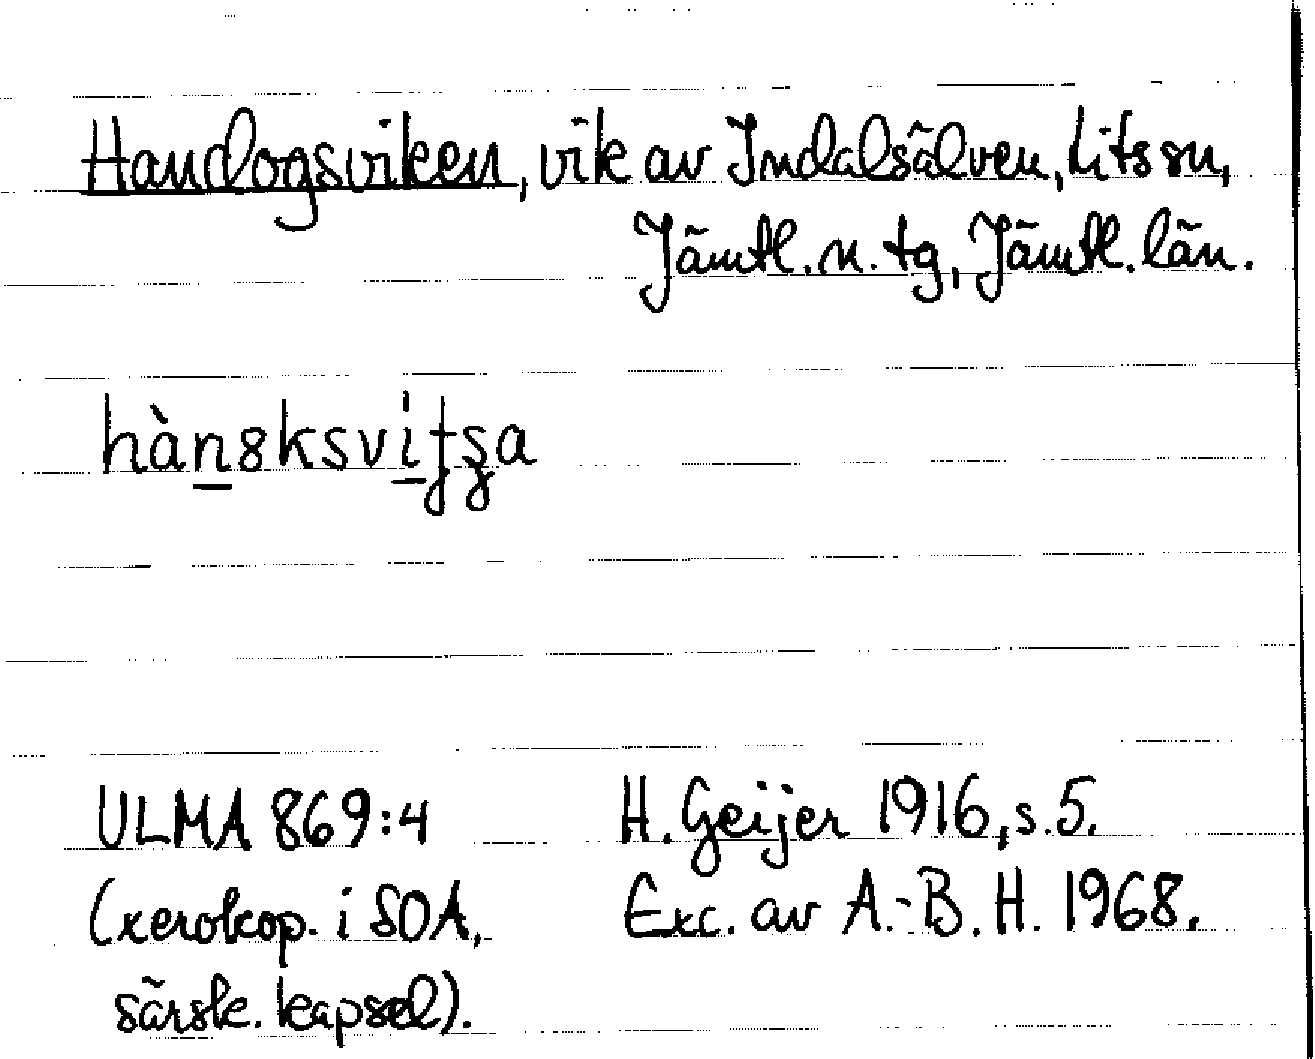 Handogsviken, vik av Indalsälven, Lits sn,
Jämtl. n. tg, Jämtl. län.
hàn̲8ksvi̲ʈʂa
ULMA 869:4 H. Geijer 1916, s. 5.
(xerokop. i SOA, Exc. av A.-B. H. 1968.
särsk. kapsel).